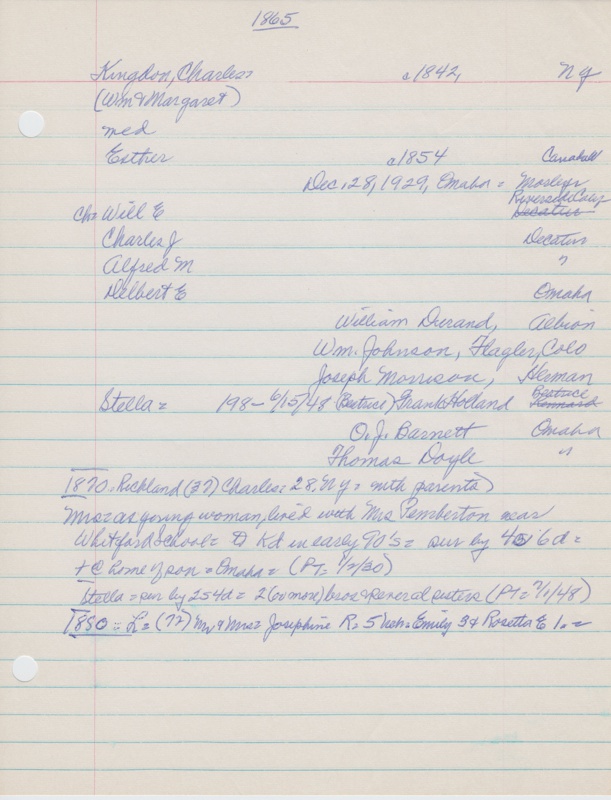 1865
Kingdon, Charles c1842, NY
(Wm & Margaret)
med
Esther c1854 Canada
Dec. 28, 1929, Omaha =
ch = Will E Riverside Calif
Charles J Decatur
Alfred M "
Delbert E Omaha
William Durand, Albion
Wm. Johnson, Flagler, Colo
Joseph Morrison, Herman
Stella = 198- 6/15/48 (Beatrice) Frank Holland Beatrice
O. J. Barnett Omaha
Thomas Doyle "
1870 = Richland (37) Charles = 28, NY = with parents)
Mrs = as young woman, lived with Mrs Pemberton near
Whitford School = to Kd in early 90's = sur by 4s 6d =
+ @ home of son = Omaha = (PT = 1/2/30)
Stella = sur by 2s 4d = 2 (or more) bros & several sisters (PT = 7/1/48)
1880 = L = (72) Mr & Mrs = Josephine R = 5 Neb = Emily 3 & Rosetta E 1. =